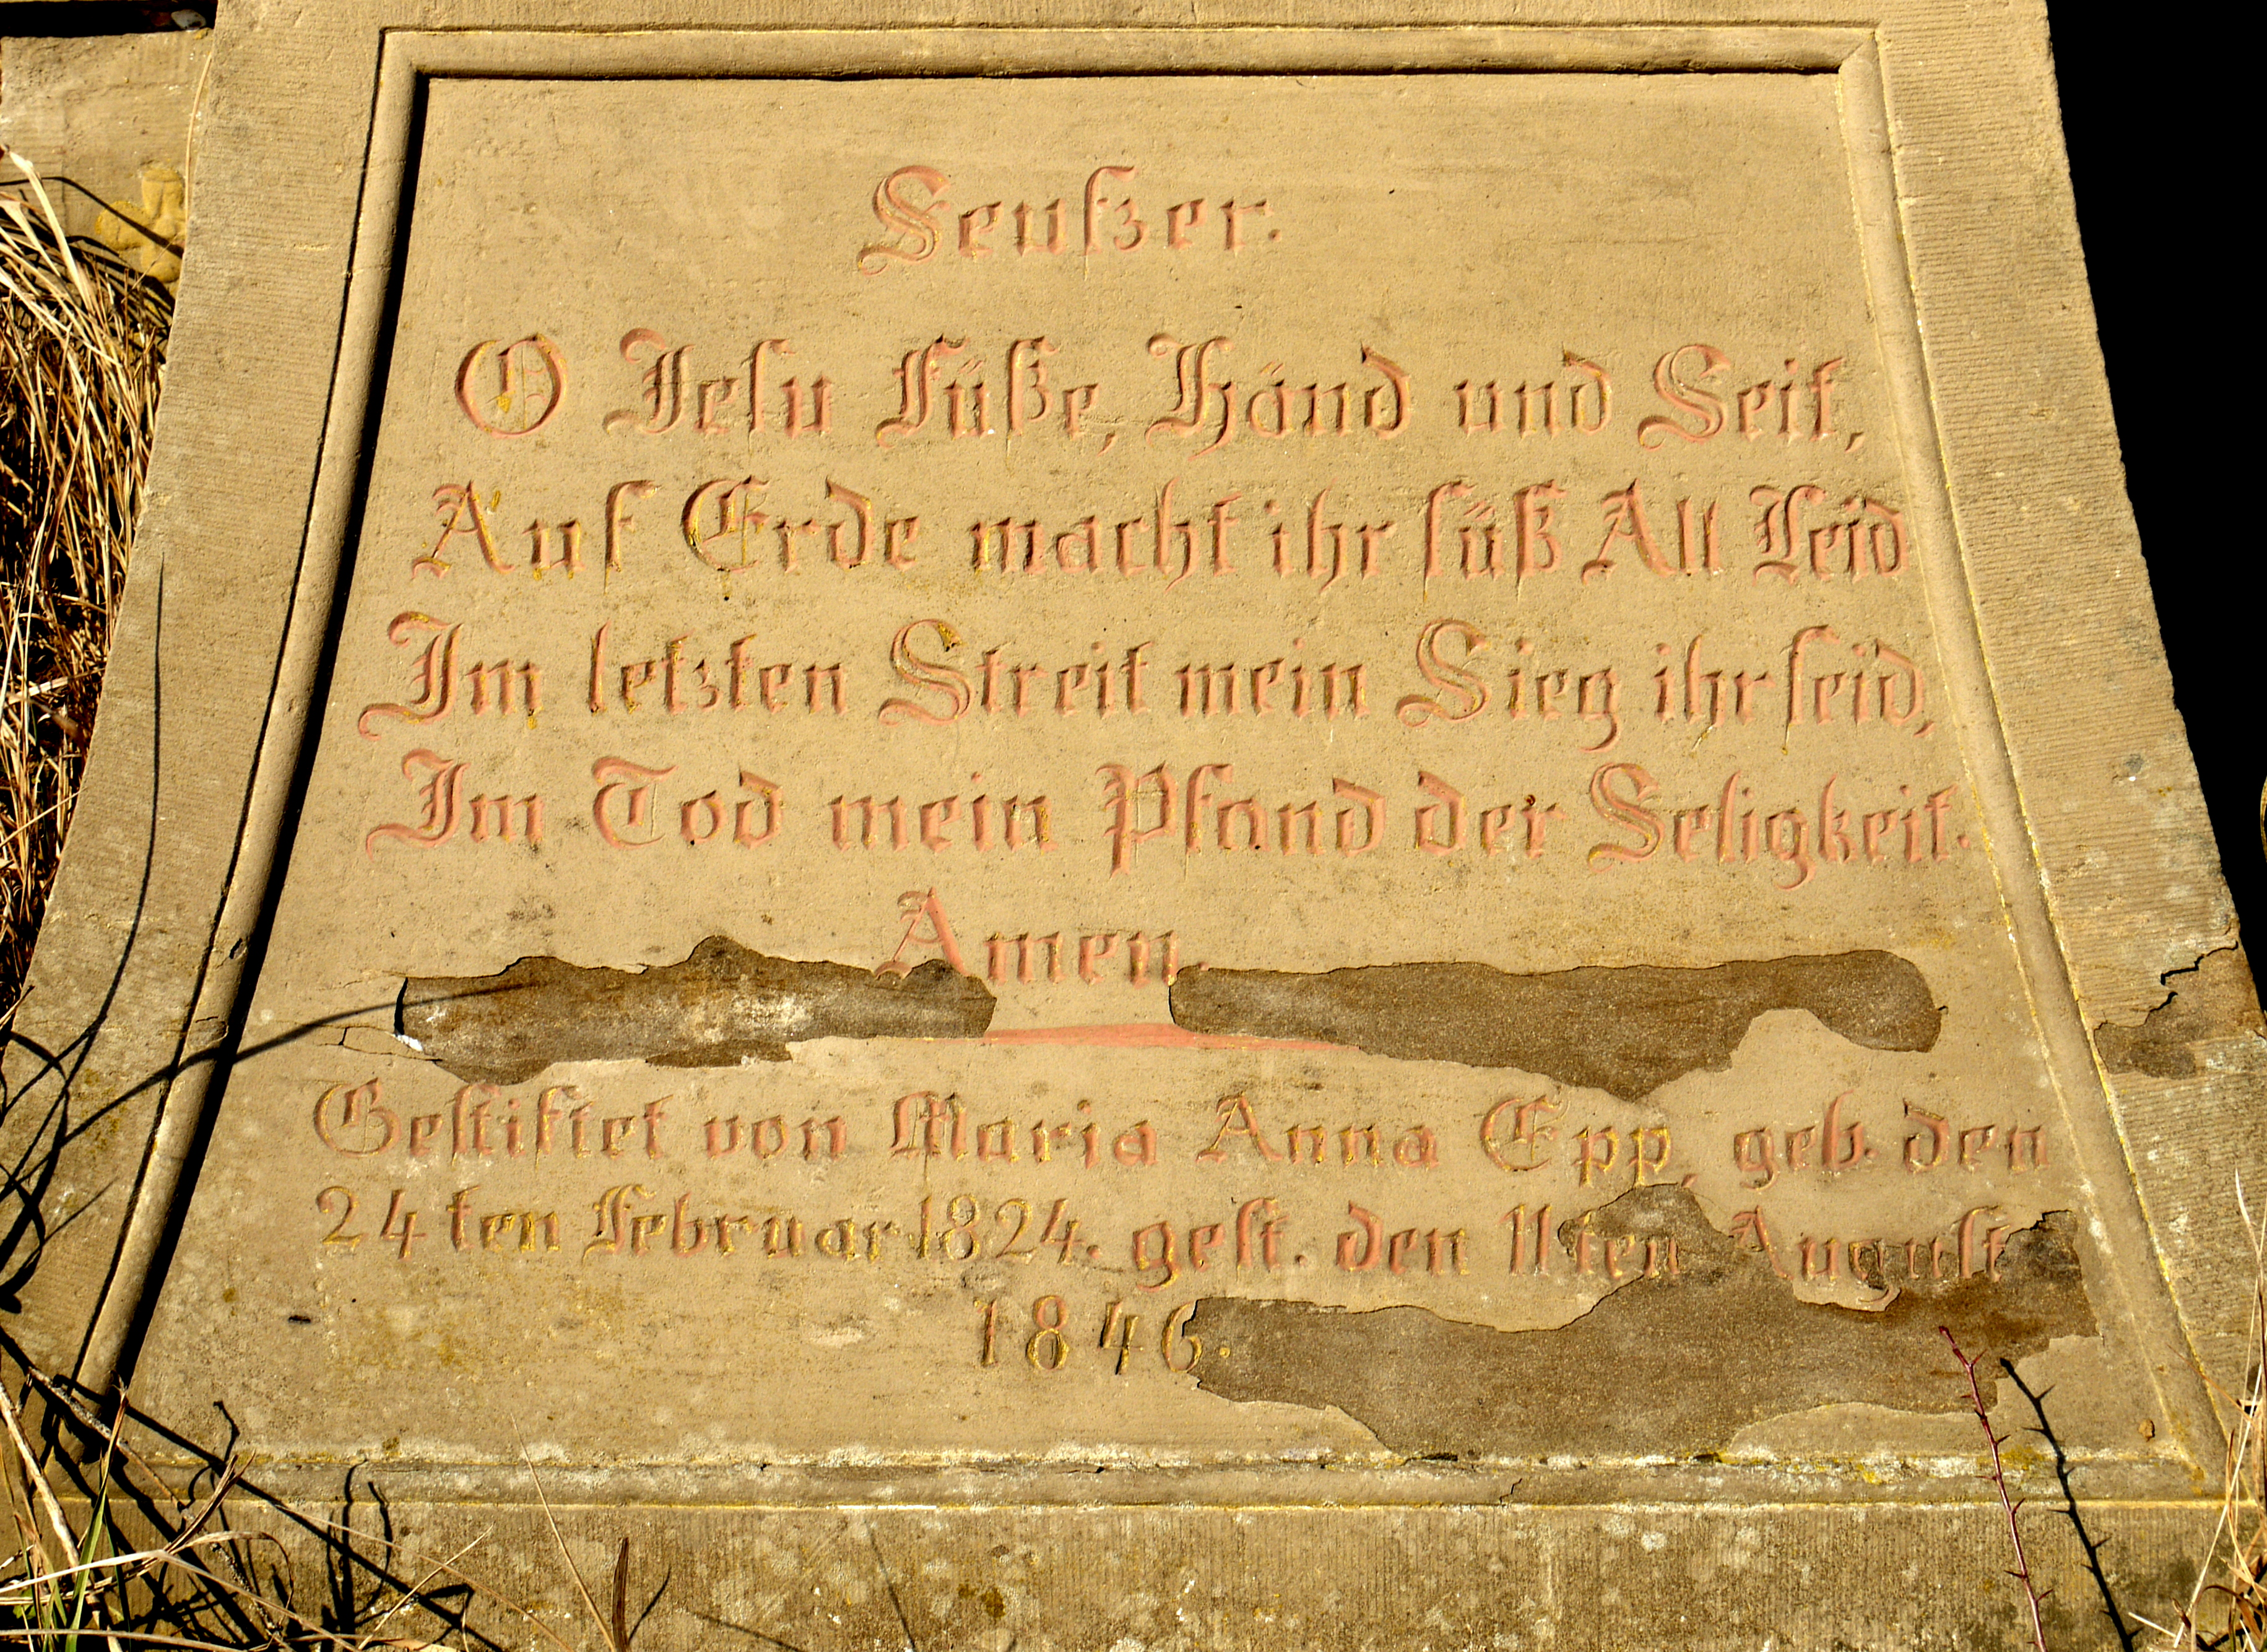 Seufzer.
O Jesu Füße, Händ und Seit,
Auf Erde macht ihr süß All Leid
Im letzten Streit mein Sieg ihr seid,
Im Tod mein Pfand der Seligkeit.
Amen.
Gestiftet von Maria Anna Epp, geb. den
24ten Februar 1824. gest. den 11ten August
1846.